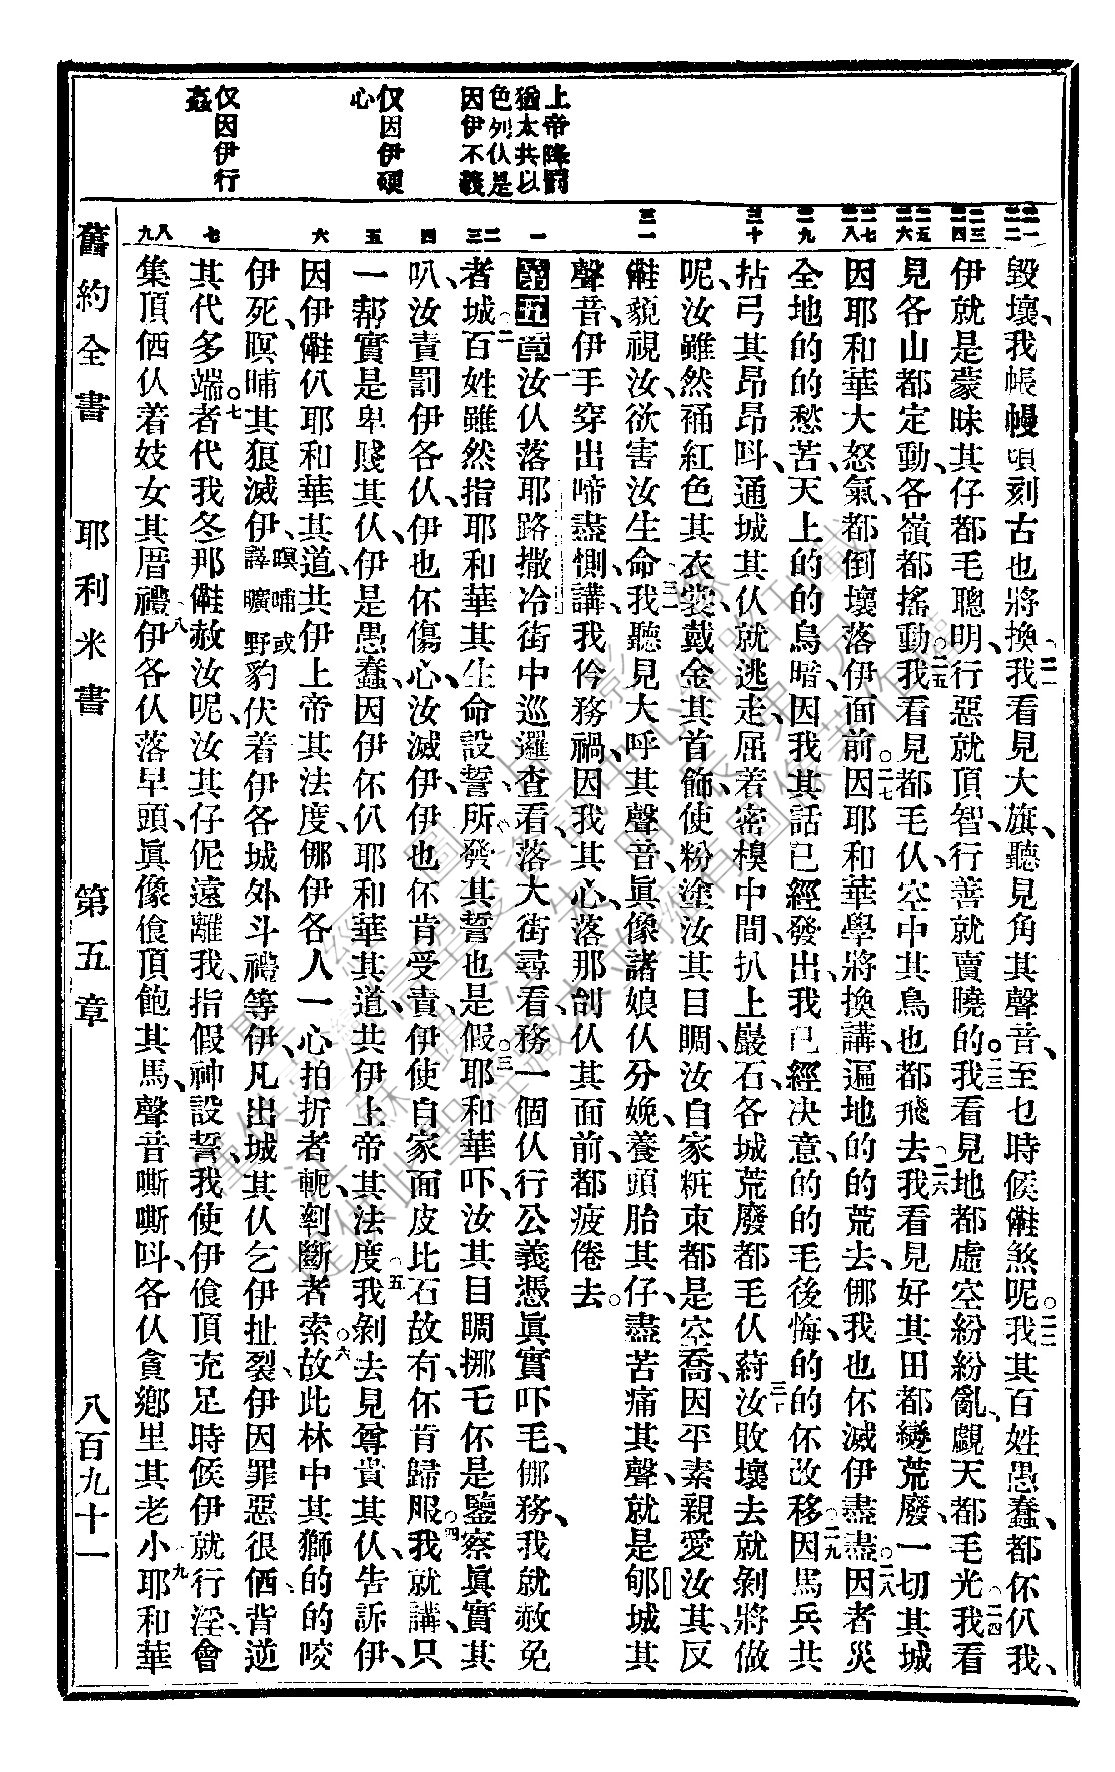 上帝降罰
猶太共以
色列仈是
因伊不義
仅因伊硬
心
仅因伊行
姦
毀壞、我帳幔頃刻古也將換、我看見大旗、聽見角其聲音、至乜時候𣍐煞呢。我其百姓愚蠢、都伓仈我、
伊就是蒙昧其仔都毛聰明、行惡就頂智、行善就賣曉的。我看見地都虛空紛紛亂、覷天都毛光、我看
見各山都定動、各嶺都搖動。我看見都毛仈、空中其鳥也都飛去、我看見好其田都變荒廢、一切其城
因耶和華大怒氣、都倒壞落伊面前。因耶和華學將換講、遍地的的荒去、㑚我也伓滅伊盡盡。因者災
全地的的愁苦、天上的的烏暗、因我其話已經發出、我已經决意、的的毛後悔、的的伓改移。因馬兵共
拈弓其昂昂呌、通城其仈就逃走、屈着密模中間、扒上巖石、各城荒廢都毛仈蒔、汝敗壞去就剝將做
呢、汝雖然䘥紅色其衣裳、戴金其首飾、使粉塗汝其目睭、汝自家粧束都是空喬、因平素親愛汝其、反
𣍐藐視汝、欲害汝生命。我聽見大呼其聲音、眞像諸娘仈分娩、養頭胎其仔、盡苦痛其聲、就是郇城其
聲音、伊手穿出啼盡惻、講、我伶務禍、因我其心落那刣仈其面前、都疲倦去。
第五章 汝仈落耶路撒冷街中巡邏查看、落大街尋看、務一個仈行公義憑眞實吓毛、㑚務、我就赦免
者城、百姓雖然指耶和華其生命設誓、所發其誓也是假。耶和華吓、汝其目睭挪毛伓是鑒察眞實其
叺、汝責罰伊各仈、伊也伓傷心、汝滅伊、伊也伓肯受責、伊使自家面皮比石故有、伓肯歸服。我就講、只
一幫實是卑賤其仈、伊是愚蠢、因伊伓仈耶和華其道、共伊上帝其法度、我剝去見尊貴其仈、告訴伊、
因伊𣍐仈耶和華其道、共伊上帝其法度、㑚伊各人一心拍折者軛、剸斷者索。故此林中其獅的的咬
伊死、暝晡其狼滅伊、暝晡或譯曠野豹伏着伊各城外斗禮等伊、凡出城其仈乞伊扯裂、伊因罪惡很侕背逆
其代多端。者代我冬那𣍐赦汝呢、汝其仔伲遠離我、指假神設誓、我使伊飠頂充足時候、伊就行淫、會
集頂侕仈着妓女其厝禮、伊各仈落早頭、眞像飠頂飽其馬、聲音嘶嘶呌、各仈貪鄉里其老小。耶和華
舊約全書 耶利米書 第五章 八百九十一